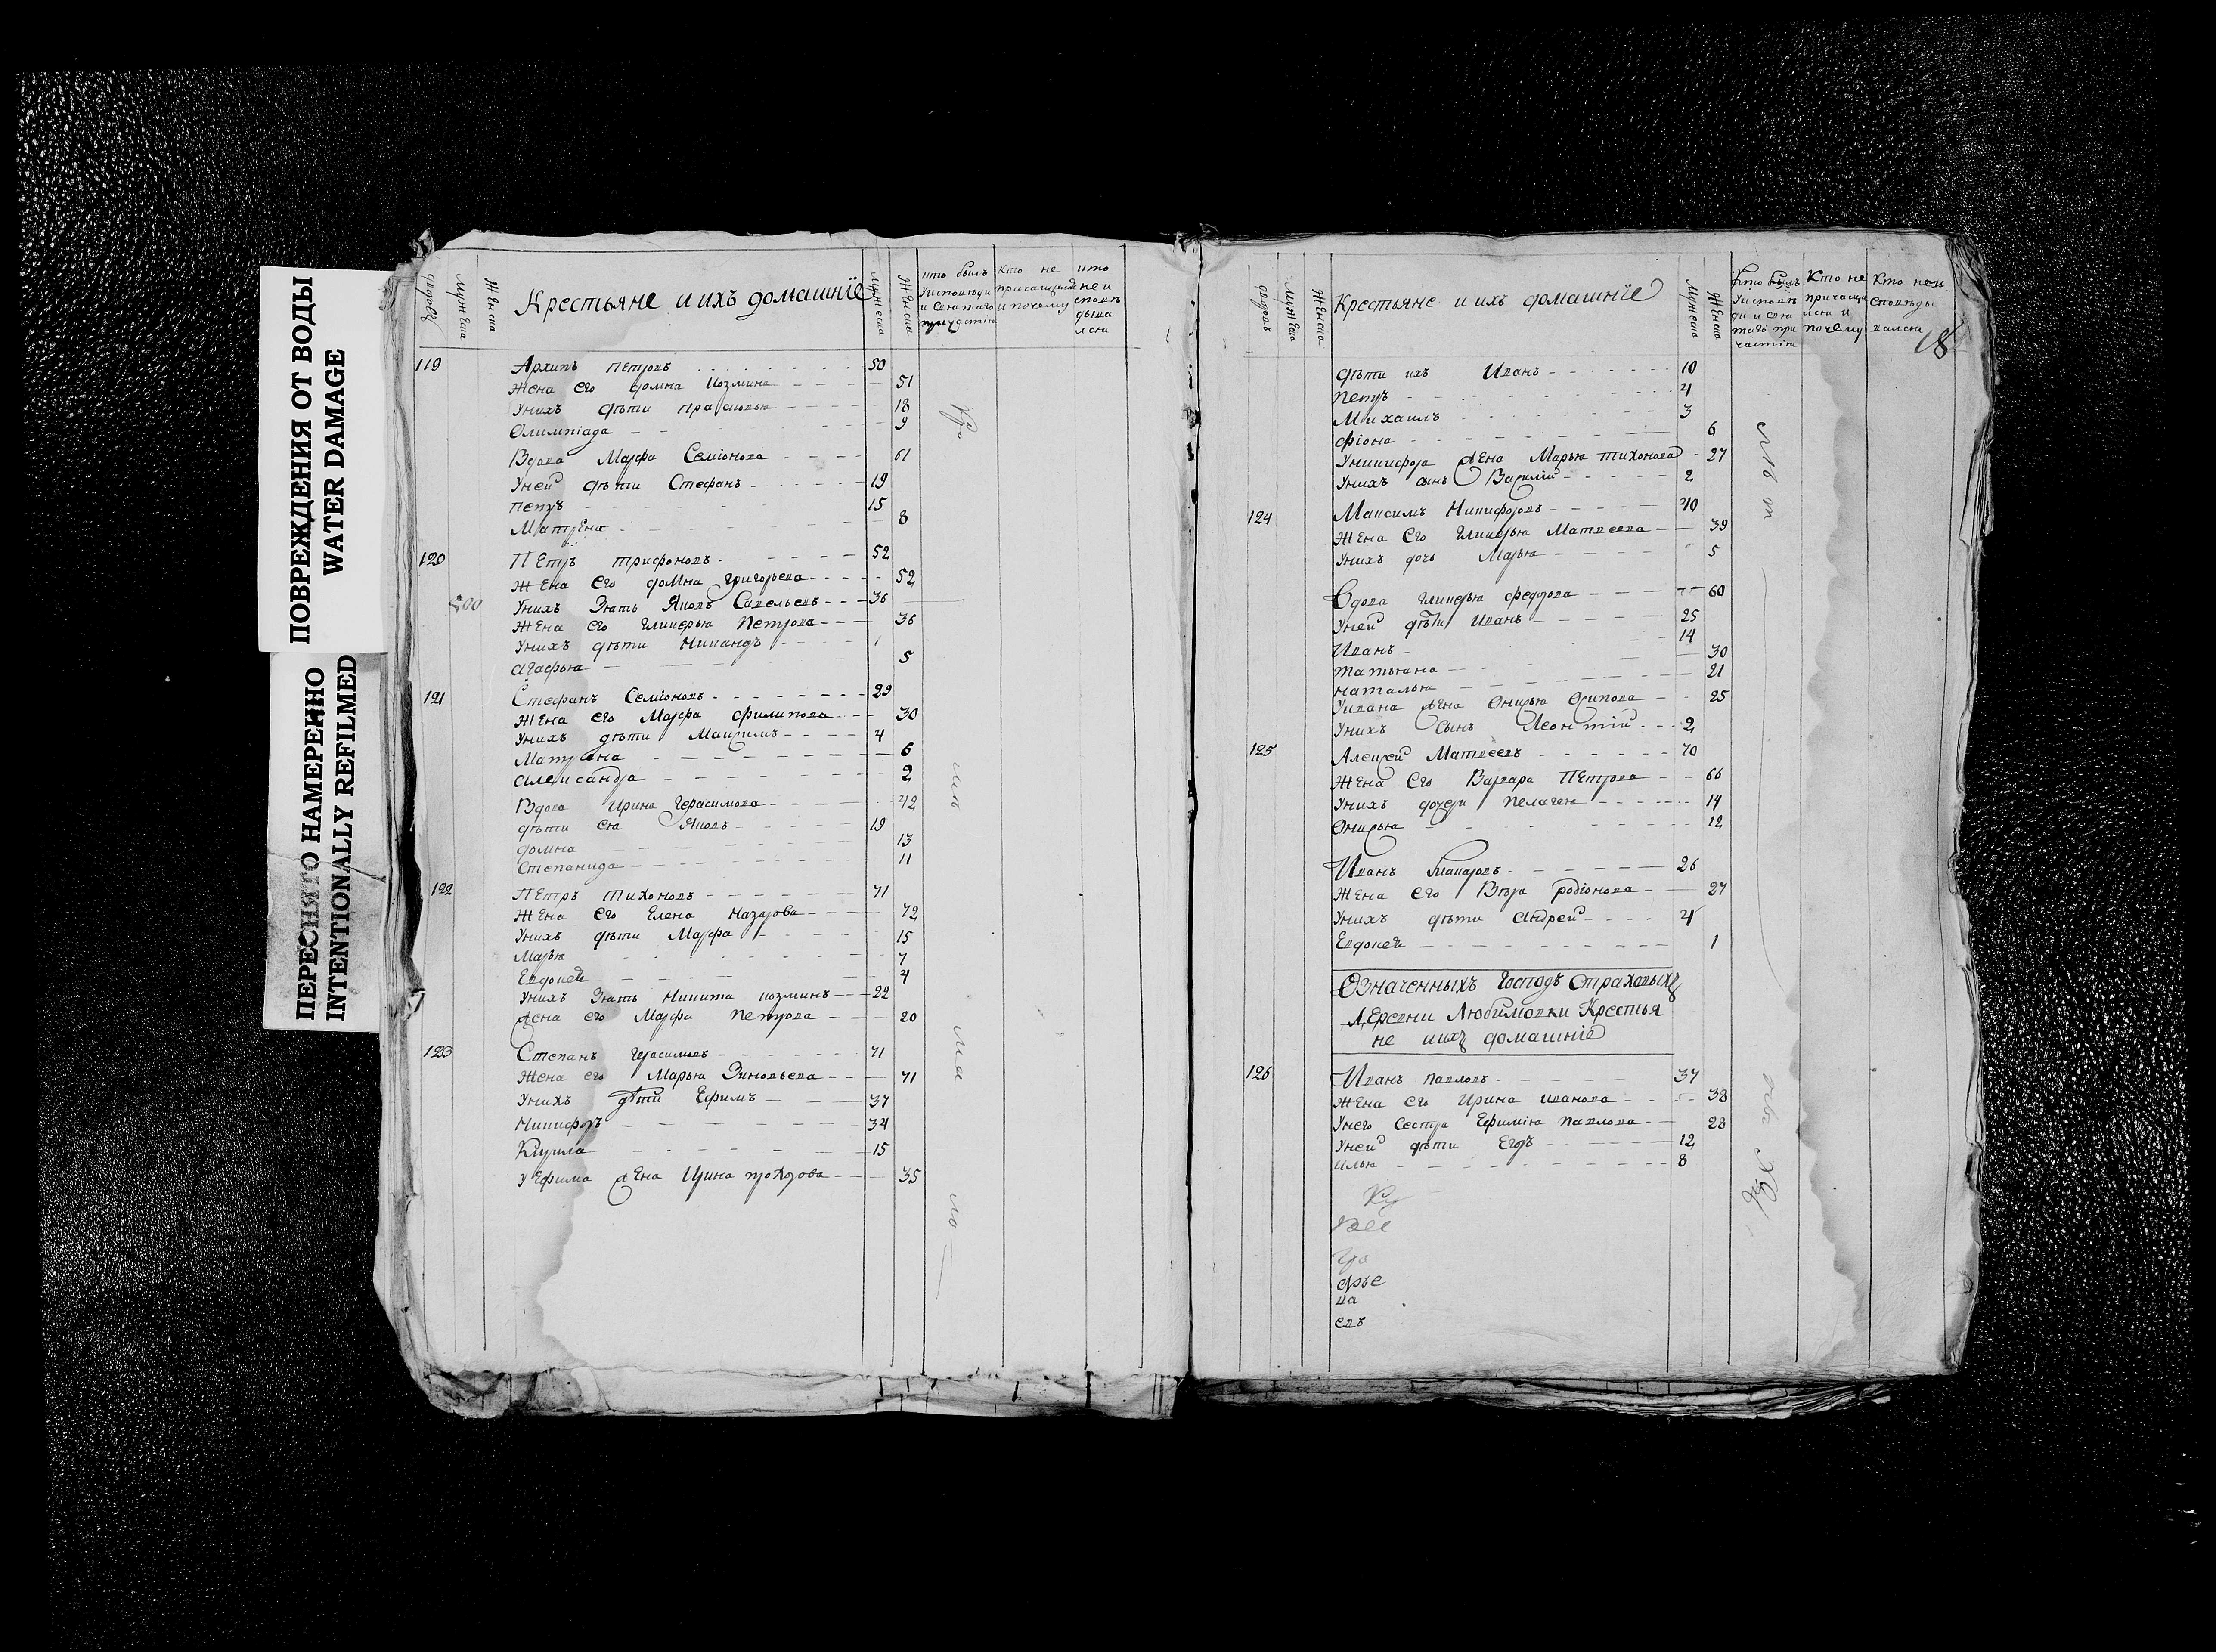 ПОВРЕЖДЕНИЯ ОТ ВОДЫ
WATER DAMAGE
ПЕРЕСНЯТО НАМЕРЕННО
INTENTIONALLY REFILMED
Крестьяне и ихъ домашнїе
119 Архипъ Петровъ 50
Жена его домна Козмина 51
Унихъ дѣти прасковья 18
Олимпіада 9
Вдова Марфа Семіонова 61
Уней дѣти Стефанъ 19
петръ 15
Матрена 8
120 Петръ трифоновъ 52
Жена его домна григорьева 52
500 Унихъ Зять Яковъ Савельевъ 36
Жена его гликерья Петрова 36
Унихъ дѣти Никандръ 1
агафья 5
121 Стефанъ Семіоновъ 29
Жена его Марфа филипова 30
Унихъ дѣти Максимъ 4
Матрена 6
александра 2
Вдова Ирина герасимова 42
дѣти ея Яковъ 19
домна 13
Степанида 11
122 Петръ тихоновъ 71
Жена его Елена Назарова 72
Унихъ дѣти Марфа 15
Марья 7
Евдокея 4
Унихъ Зять Никита козминъ 22
жена его Марфа петрова 20
123 Степанъ герасимовъ 71
Жена его Марья Зиновьева 71
Унихъ дѣти Ефимъ 37
Никифоръ 34
Кирила 15
У Ефима жена Ирина прохорова 35
Крестьяне и ихъ домашнїе
18
дѣти ихъ Иванъ 10
петръ 4
Михаилъ 3
фіона 6
Уникифора жена Марья тихонова 27
Унихъ сынъ Василій 2
124 Максимъ Никифоровъ 40
Жена Его гликерья Матвеева 39
Унихъ дочь Марья 5
Вдова гликерья феддова 60
Уней дѣти Иванъ 25
Иванъ 14
татьяна 30
наталья 21
Уивана жена Окирья Осипова 25
Унихъ Сынъ Леонтій 2
125 Алексей Матвеевъ 70
Жена Его Варвара Петрова 66
Унихъ дочери пелагея 14
Окирья 12
Иванъ Макаровъ 26
Жена его Вѣра родіонова 27
Унихъ дѣти андрей 4
Евдокея 1
Означенныхъ Господъ Страховыхъ
Деревни Любимовки Крестья
не иихъ домашніе
126 Иванъ павловъ 37
Жена его Ирина иванова 38
Унего Сестра Ефимія павлова 28
Уней дѣти Егоръ 12
илья 8